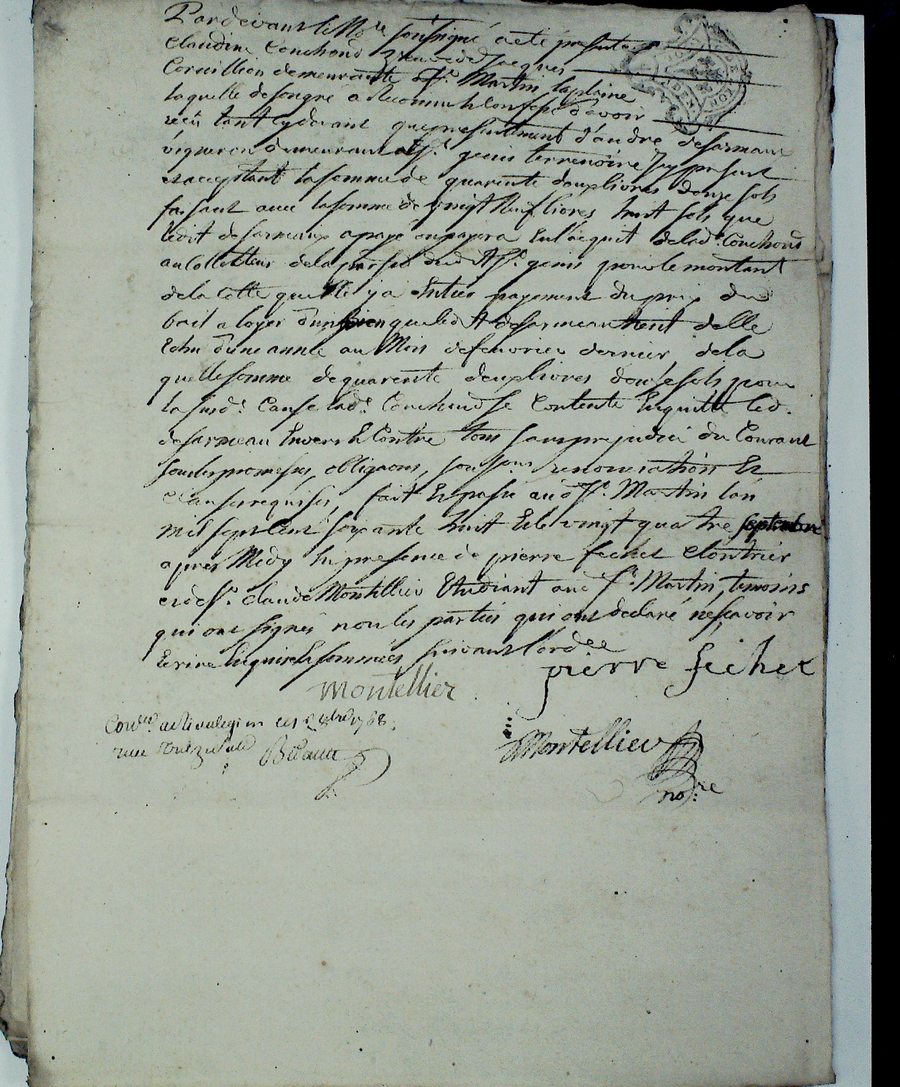 Pardevant le No.re soussigné a eté presente
Claudine Couchoud veuve de Jacques
Corseillion demeurante a St. Martin la plaine
laquelle de son gré a Reconnu et Confessé d'avoir
receu tant cy devant que presentement d'andré desarmeau
vigneron demeurant a St. genis terrenoire Icy present
et acceptant la somme de quarente deux livres douze sols
faisant avec la somme de vingt neuf livres huit sols que
ledit desarmeaux a payé ou payera En l'acquit de lad. Couchoud
au Collecteur de la parroisse dud. St. genis pour le montant
de la Cotte quelle y a Entier payement du prix du
bail a loyer d'un que led. desarmeau tient delle
Echu d'une année au Mois de fevrier dernier, de la
quelle somme de quarente deux livres douze sols pour
la susd. Cause lad. Couchoud se Contente En quitte led.
desarmeau Envers et Contre tous sans prejudice du Courant
sous les promesses, obligaons, renonciations Et
Clauses requises, fait Et passé aud. St. Martin l'an
mil sept Cent soixante huit Et le vingt quatre septembre
apres Midy En presence de pierre fechet Cloutrier
dud. St. Claude Montellier Etudiant aud. St. Martin, temoins
qui ont signés non les parties qui ont declaré ne sçavoir
Ecrire Enquis et sommées suivant l'ord.ce
pierre fechet
montellier
Con.lé a Rivedegier ce 1768.
reçu
Montellier
no.re